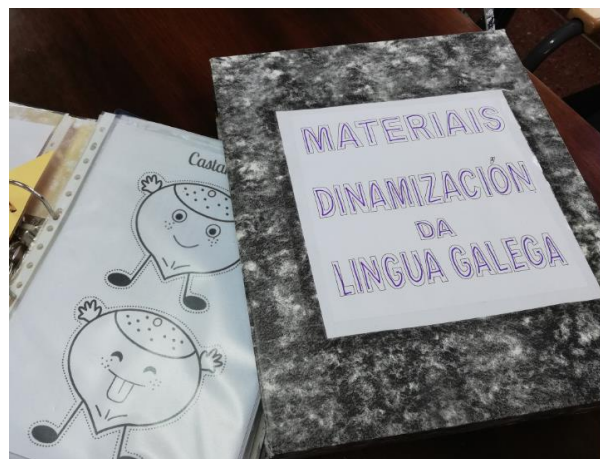 Casta
MATERIAIS
DINAMIZACIÓN
DA
LINGUA GALEGA